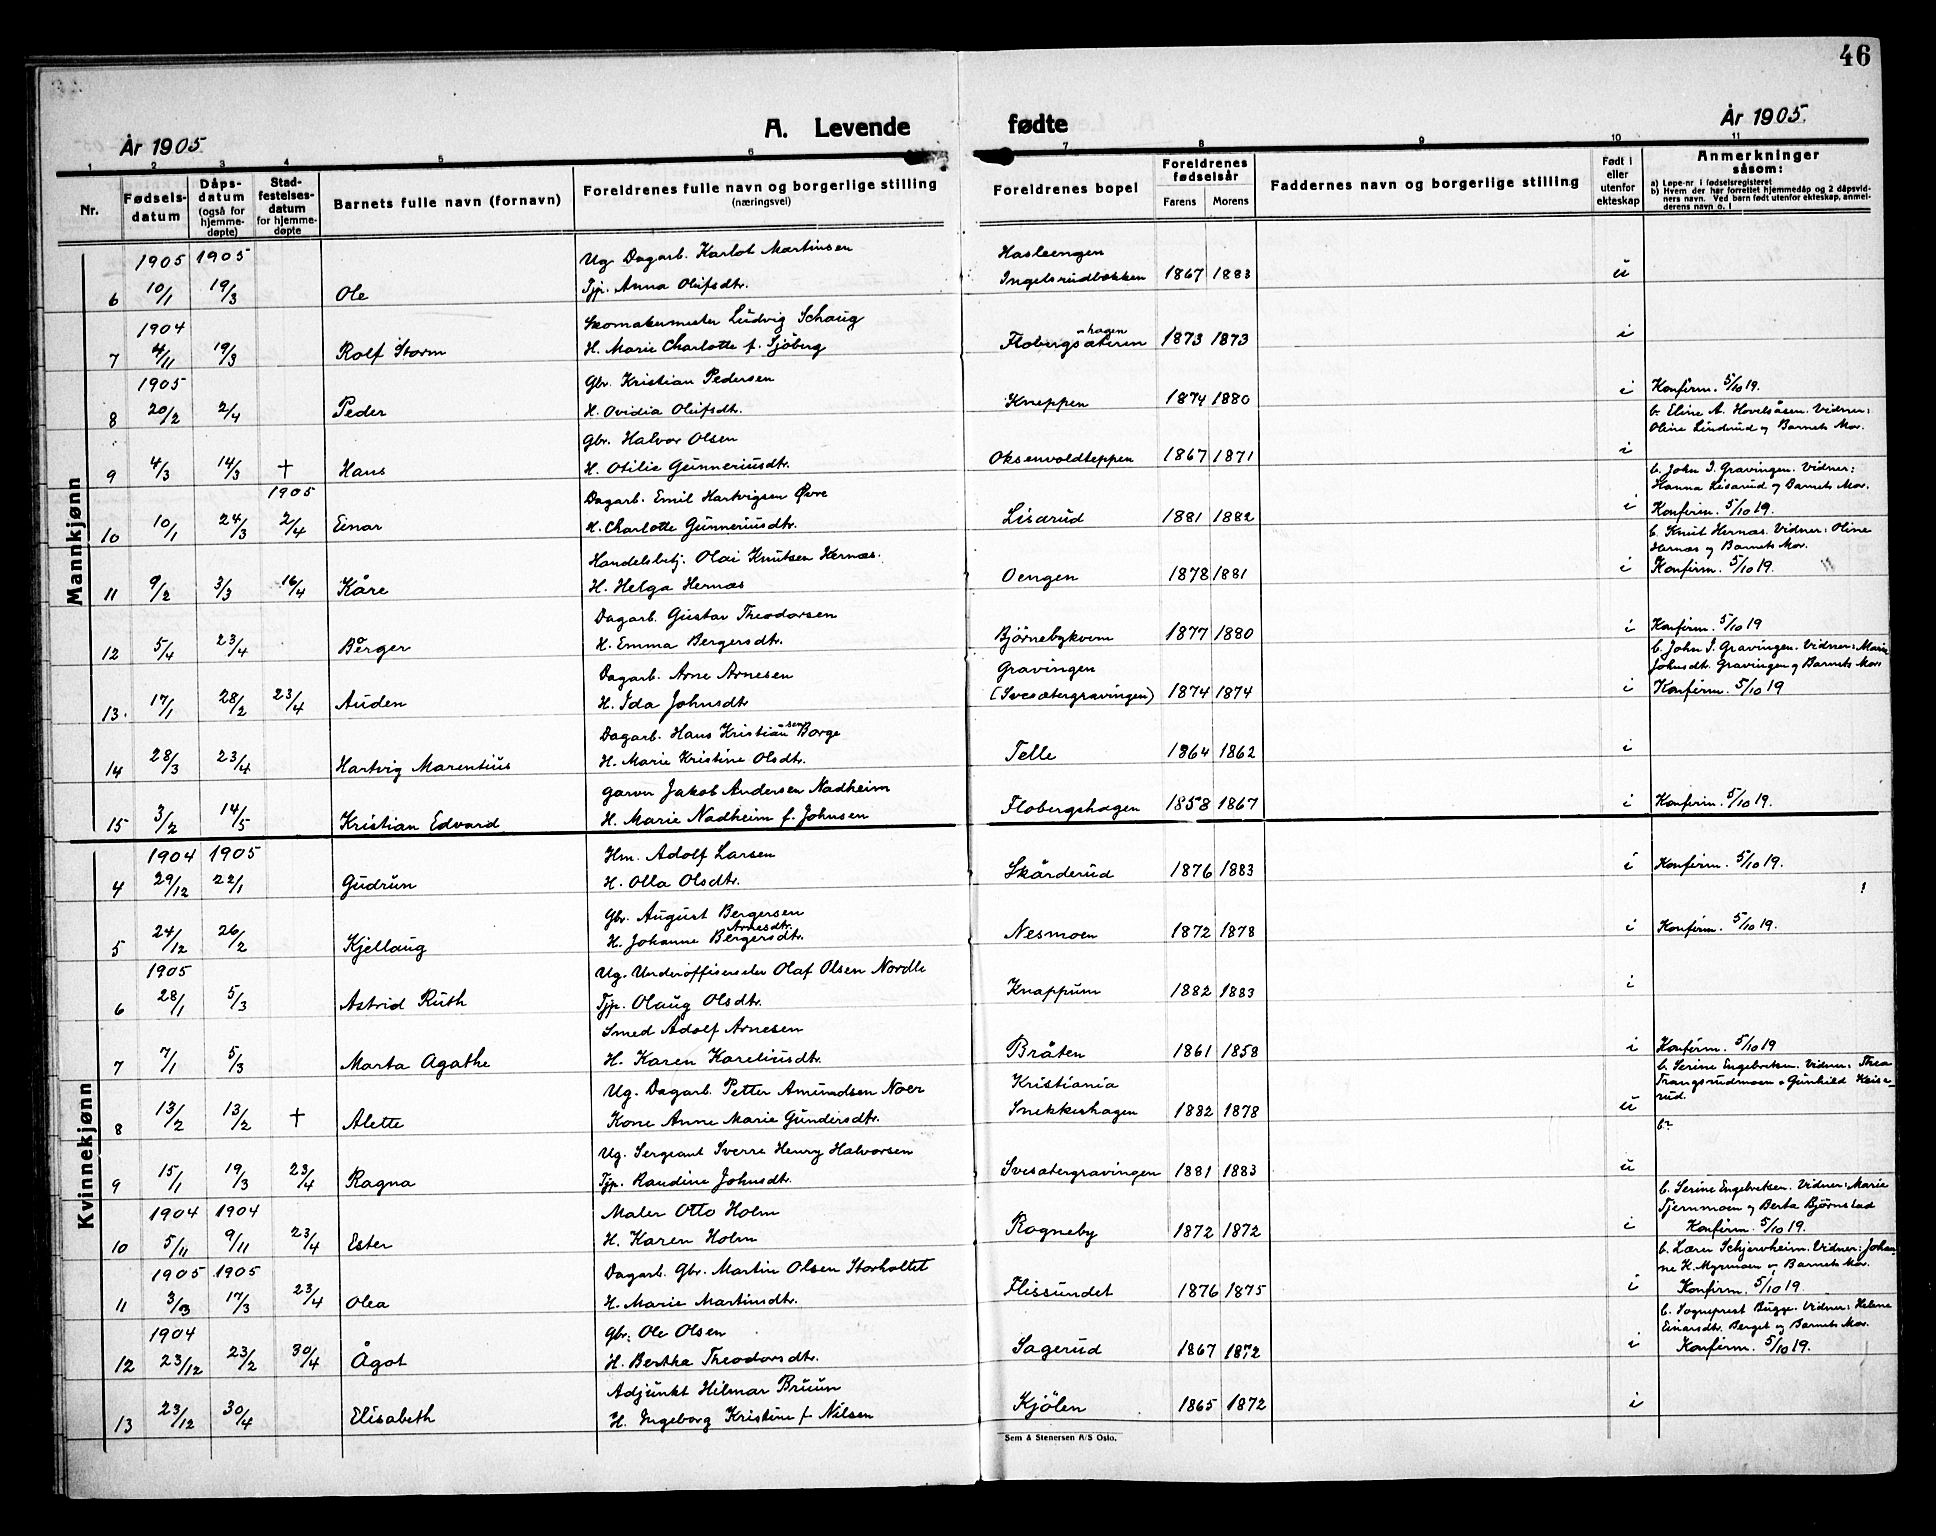 46
År 1905
A. Levende fødte
År 1905.
1 2 3 4 5 6 7 8 9 10 11
Nr. Fødsels-datum Dåps-datum (også for hjemme-døpte) Stad-festelses-datum for hjemme-døpte Barnets fulle navn (fornavn) Foreldrenes fulle navn og borgerlige stilling (næringsvei) Foreldrenes bopel Foreldrenes fødselsår Farens Morens Faddernes navn og borgerlige stilling Født i eller utenfor ekteskap Anmerkninger såsom: a) Løpe-nr i fødselsregisteret b) Hvem der har forrettet hjemmedåp og 2 dåpsvidners navn. Ved barn født utenfor ekteskap, anmelderens navn o. l
Mannkjønn
1905 1905 Ug. Dagarb. Karlot Martinsen Hasleengen
6 10/1 19/3 Ole Tjp. Anna Olufsdtr. Ingelsrudbakken 1867 1883 u
1904 Skomakermester Ludvig Schaug
7 4/11 19/3 Rolf Storm H. Marie Charlotte f. Sjöberg Flobergshagen 1873 1873 i
1905 Gbr. Kristian Pedersen
8 20/2 2/4 Peder H. Ovidia Olufsdtr. Kneppen 1874 1880 i Konfirm. 5/10 19.
Gbr. Halvor Olsen b. Eline A. Hovelsåsen. Vidner: Oline Linderud og Barnets Mor.
9 4/3 14/3 † Hans H. Otilie Gunneriusdtr. Oksenvoldteppen 1867 1871 i
1905 Dagarb. Emil Hartvigsen Øvre b. John I. Gravingen. Vidner: Hanna Lisarud og Barnets Mor.
10 10/1 24/3 2/4 Einar H. Charlotte Gunneriusdtr. Lisarud 1881 1882 i Konfirm. 5/10 19.
Handelsbetj. Olai Knutsen Hernæs. b. Knut Hernæs. Vidner: Oline Hernæs og Barnets Mor.
11 9/2 3/3 16/4 Kåre H. Helga Hernæs Oengen 1878 1881 i Konfirm. 5/10 19.
Dagarb. Gustav Theodorsen
12 5/4 23/4 Berger H. Emma Bergersdtr. Bjørnebykvern 1877 1880 i Konfirm. 5/10 19
Dagarb. Arne Arnesen Gravingen b. John I. Gravingen. Vidner: Marie Johnsdt. Gravingen og Barnets Mor.
13. 17/1 28/2 23/4 Auden H. Ida Johnsdtr (Svesætergravingen) 1874 1874 i Konfirm. 5/10 19
Dagarb. Hans Kristiansen Borge
14 28/3 23/4 Hartvig Marentius H. Marie Kristine Olsdtr. Telle 1864 1862 i
Garver Jakob Andersen Nadheim
15 3/2 14/5 Kristian Edvard H. Marie Nadheim f. Johnsen Flobergshagen 1858 1867 i Konfirm. 5/10 19.
Kvinnekjønn
1904 1905 Hm. Adolf Larsen
4 29/12 22/1 Gudrun H. Olla Olsdtr. Skårderud 1876 1883 i Konfirm. 5/10 19.
Gbr. August Bergersen
5 24/12 26/2 Kjellaug H. Johanne Bergersdtr. Arnesdtr. Nesmoen 1872 1878 i Konfirm. 5/10 19.
1905 Ug. Underoffiserselev Olaf Olsen Nordli
6 28/1 5/3 Astrid Ruth Tjp. Olaug Olsdtr. Knappum 1882 1883 i
Smed Adolf Arnesen
7 7/1 5/3 Marta Agathe H. Karen Kareliusdtr. Bråten 1861 1858 i Konfirm. 5/10 19
Ug. Dagarb. Petter Amundsen Noer Kristiania b. Serine Engebretsen. Vidner: Thea Trangsrudmoen o Gunhild Keiserud.
8 13/2 13/2 † Alette Kone Anne Marie Gundersdtr. Snekkeshagen 1882 1878 u
Ug. Sergeant Sverre Henry Halvorsen b.
9 15/1 19/3 23/4 Ragna Tjp. Randine Johnsdtr. Svesætergravingen 1881 1883 u
1904 1904 Maler Otto Holm b. Serine Engebretsen. Vidner: Marie Tjernmoen og Berta Bjørnstad
10 5/11 9/11 23/4 Ester H. Karen Holm Rogneby 1872 1872 i Konfirm. 5/10 19.
1905 1905 Dagarb. Gbr. Martin Olsen Storholtet b. Lærer Schjervheim. Vidner: Johanne K. Myrmoen og Barnets Mor.
11 3/3 17/3 23/4 Olea H. Marie Martinsdtr. Flissundet 1876 1875 i Konfirm. 5/10 19.
1904 Gbr. Ole Olsen b. Sogneprest Bugge. Vidner: Helene Einarsdtr. Berget og Barnets Mor.
12 23/12 23/2 30/4 Ågot H. Berthe Theodorsdtr. Sagerud 1867 1872 i Konfirm. 5/10 19.
Adjunkt Hilmar Bruun
13 23/12 30/4 Elisabeth H. Ingeborg Kristine f. Nilsen Kjölen 1865 1872 i
Sem & Stenersen A/S Oslo.